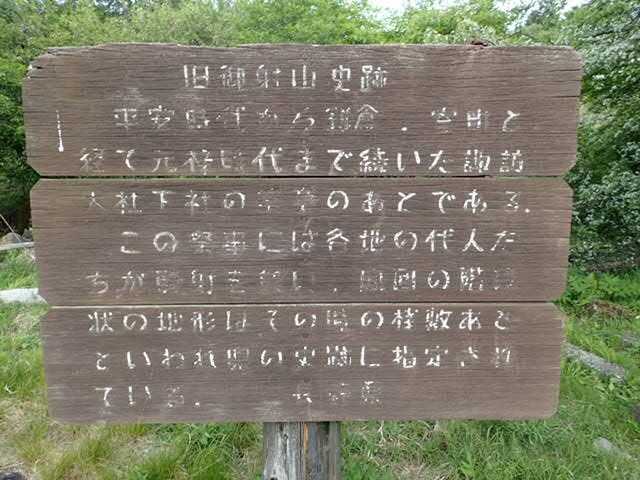 旧御射山史跡
平安時代から鎌倉、室町と
経て元禄時代まで続いた諏訪
大社下社の祭事のあとである。
この祭事には各地の代人た
ちが 射を 、周囲の階段
状の地形はその時の桟敷あと
といわれ県の史跡に指定され
ている。 長野県